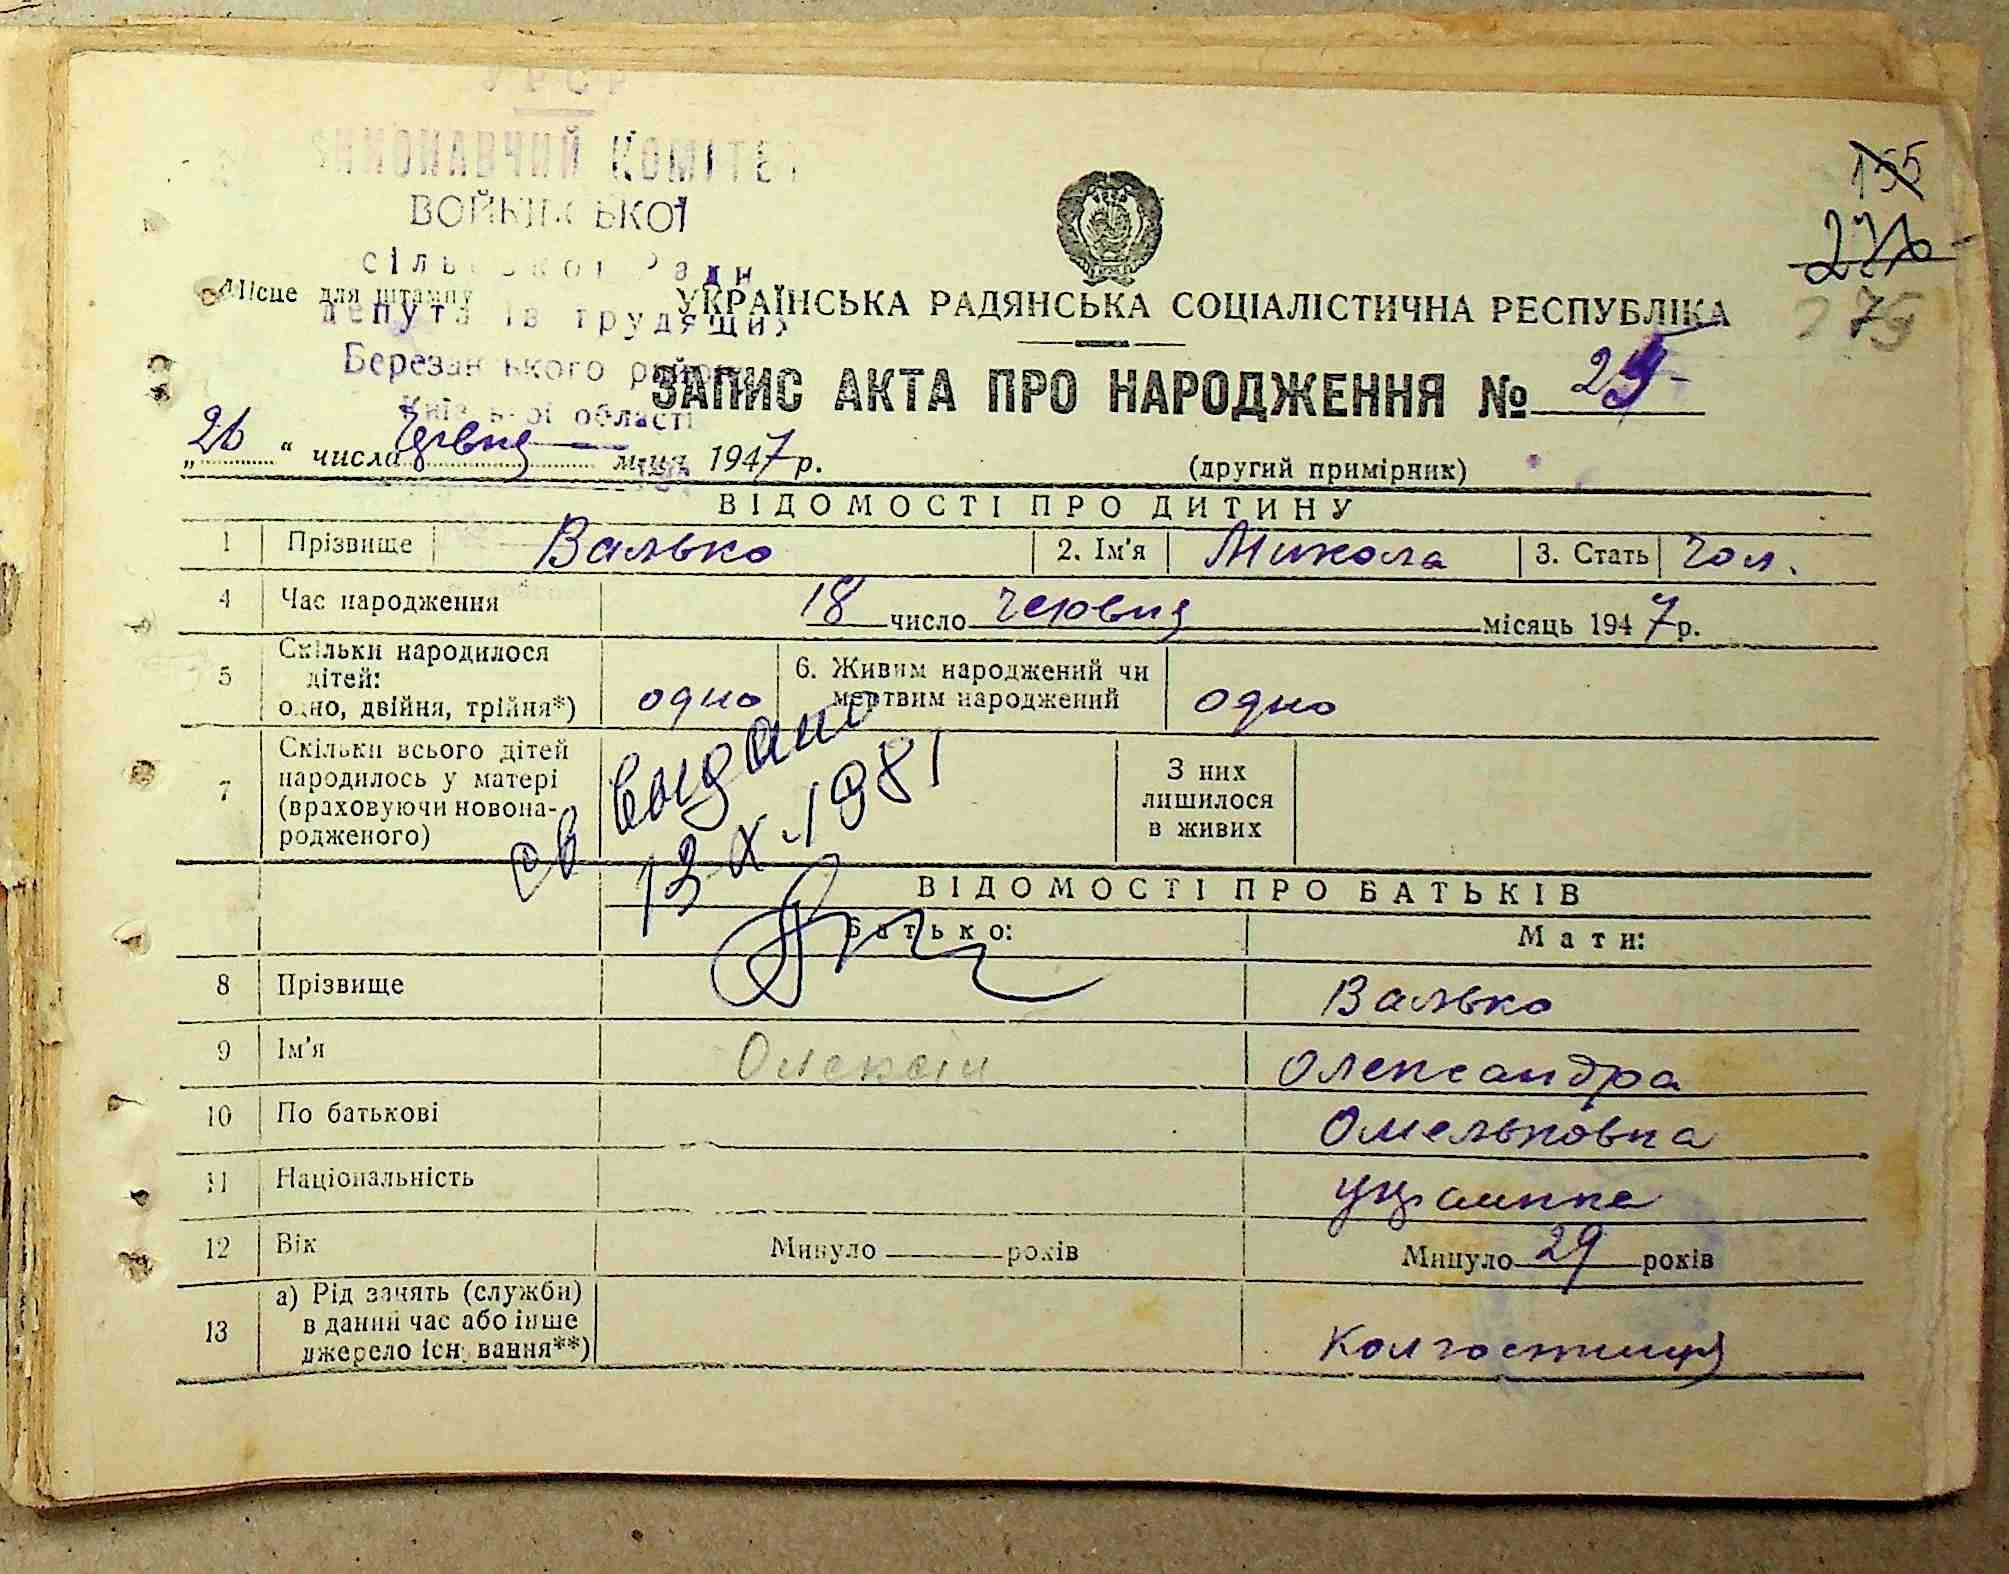 УРСР
ВИКОНАВЧИЙ КОМІТЕТ
ВОЙКІВСЬКОЇ
сільської Ради
депутатів трудящих
Березанського району
Київської області
Місце для штампу
155
276
275
УКРАЇНСЬКА РАДЯНСЬКА СОЦІАЛІСТИЧНА РЕСПУБЛІКА
ЗАПИС АКТА ПРО НАРОДЖЕННЯ №
„26“ числа червня м-ця 1947 р.
(другий примірник)
ВІДОМОСТІ ПРО ДИТИНУ
1 Прізвище Валько 2. Ім'я Микола 3. Стать чол.
4 Час народження 18 число червня місяць 1947 р.
5 Скільки народилося дітей: одно, двійня, трійня*) одно 6. Живим народжений чи мертвим народжений одно
7 Скільки всього дітей народилось у матері (враховуючи новонародженого) З них лишилося в живих
св выдано
13 X 1981
ВІДОМОСТІ ПРО БАТЬКІВ
Батько: Мати:
8 Прізвище Валько
9 Ім'я Олексій Олександра
10 По батькові Омельковна
11 Національність українка
12 Вік Минуло років Минуло 29 років
13 а) Рід занять (служби) в даний час або інше джерело існування**) Колгостниця